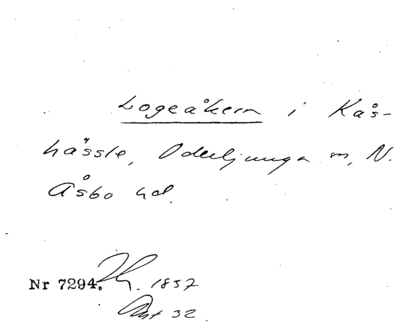 Logeåkern i Kås-
hässle, Oderljunga sn, N.
Åsbo hd.
Nr 7294. 1857
Akt 32